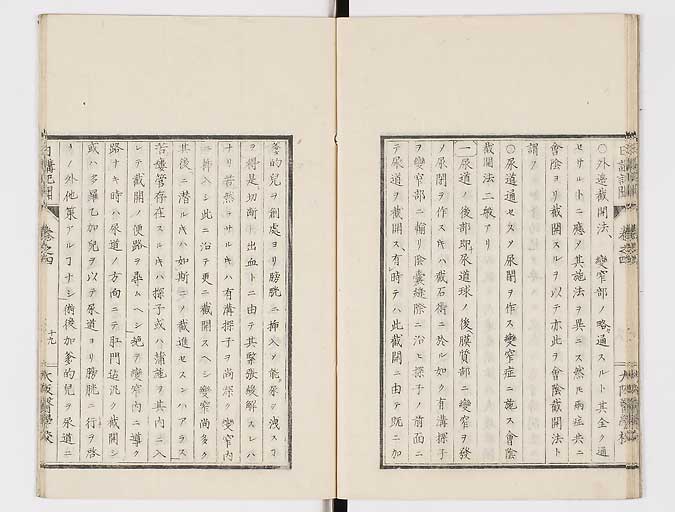 〇外邊截開法、變窄部ノ略〻通スルト其全ク通
セサルトニ應メ其施法ヲ異ニス然𪜈兩症共ニ
會陰ヨリ截開スルヲ以テ亦此ヲ會陰截開法ト
謂フ
〇尿道通セスメ尿閉ヲ作ス變窄症ニ施ス會陰
截開法二般アリ
一尿道ノ後部即尿道球ノ後膜質部ニ變窄ヲ發
ノ尿閉ヲ作ス𪜈ハ截石術ニ於ル如ク有溝探子
ヲ變窄部ニ輸リ陰囊縫際ニ沿ヒ探子ノ前面ニ
テ尿道ヲ截開ス、有時テハ此截開ニ由テ既ニ加
篤的兒ヲ創處ヨリ膀胱ニ挿入ノ能ク尿ヲ洩スヿ
ヲ得是切斷ト出血トニ由テ其緊張緩解スレハ
ナリ若然ラサル𪜈ハ有溝探子ヲ尚深ク變窄内
ニ挿入シ此ニ沿テ更ニ截開スヘシ變窄尚多ク
其後ニ潜ル𪜈ハ如斯ニノ截進セスンハアラス
若瘻管存在スル𪜈ハ探子或ハ蒲施ヲ其内ニ入
レテ截開ノ便路ヲ尋ムヘシ絶テ變窄内ニ導ク
路ナキ時ハ尿道ノ方向ニテ肛門近傍ク截開シ
或ハ多羅乙加兒ヲ以テ尿道ヨリ膀胱ニ行ヲ啓
クノ外他策アルヿナシ術後加篤的兒ヲ尿道ニ
日講記聞
卷之四
十九
大阪醫學校